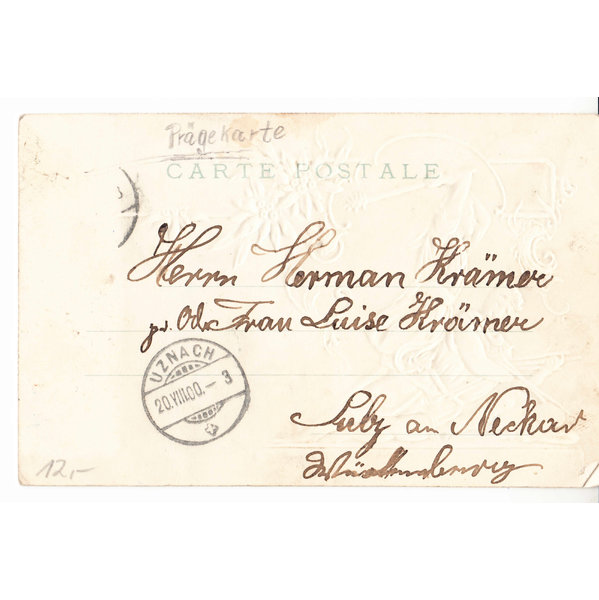 Prägekarte
CARTE POSTALE
Herrn Herman Krämer
Frau Luise Krämer
UZNACH
20.VIII.00.-3
Sulz am Neckar
Württemberg
12,-